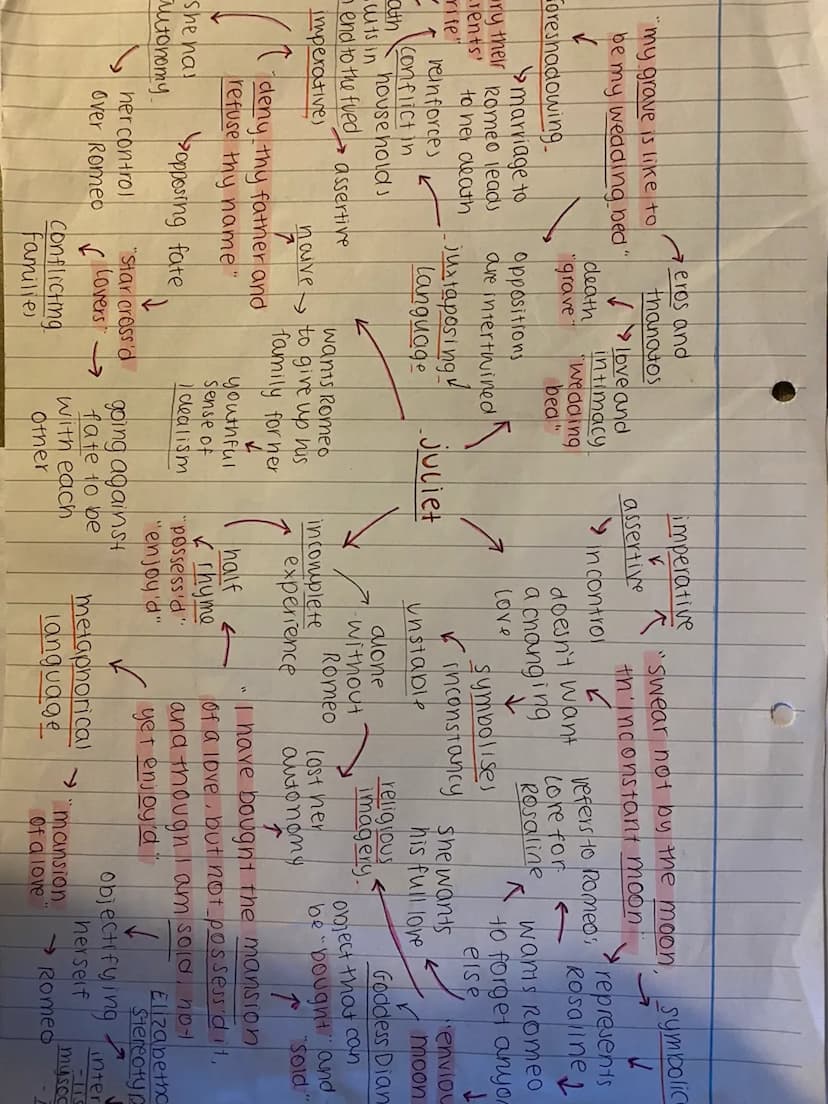 "my grave is like to
be my wedding bed"
eros and
thanatos
death
"grave"
love and
intimacy
"wedding
bed"
foreshadowing
marriage to
Romeo leads
to her death
oppositions
are intertwined
juxtaposing
language
reinforces
conflict in
households
end to the feud
imperatives
assertive
"deny thy father and
refuse thy name"
naive
wants Romeo
to give up his
family for her
youthful
sense of
idealism
she has
autonomy
her control
over Romeo
opposing fate
"star cross'd
lovers"
conflicting
families
going against
fate to be
with each
other
Juliet
imperative
assertive
in control
"swear not by the moon,
th'inconstant moon
symbolic
represents
Rosaline
refers to Romeo's
love for
Rosaline
doesn't want
a changing
love
symbolises
inconstancy
unstable
wants Romeo
to forget
else
she wants
his full love
moon
Goddess
religious
imagery
alone
without
Romeo
incomplete
experience
lost her
autonomy
object that can
be "bought" and
"sold"
half
rhyme
"possess'd"
"enjoy'd"
"I have bought the mansion
of a love, but not possess'd it,
and though I am sold, not
yet enjoy'd"
metaphorical
language
"mansion
of a love"
Romeo
objectifying
herself